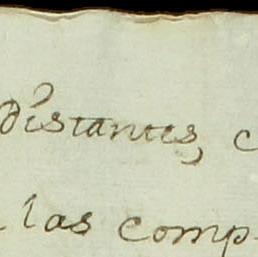 distantes, c
las comp